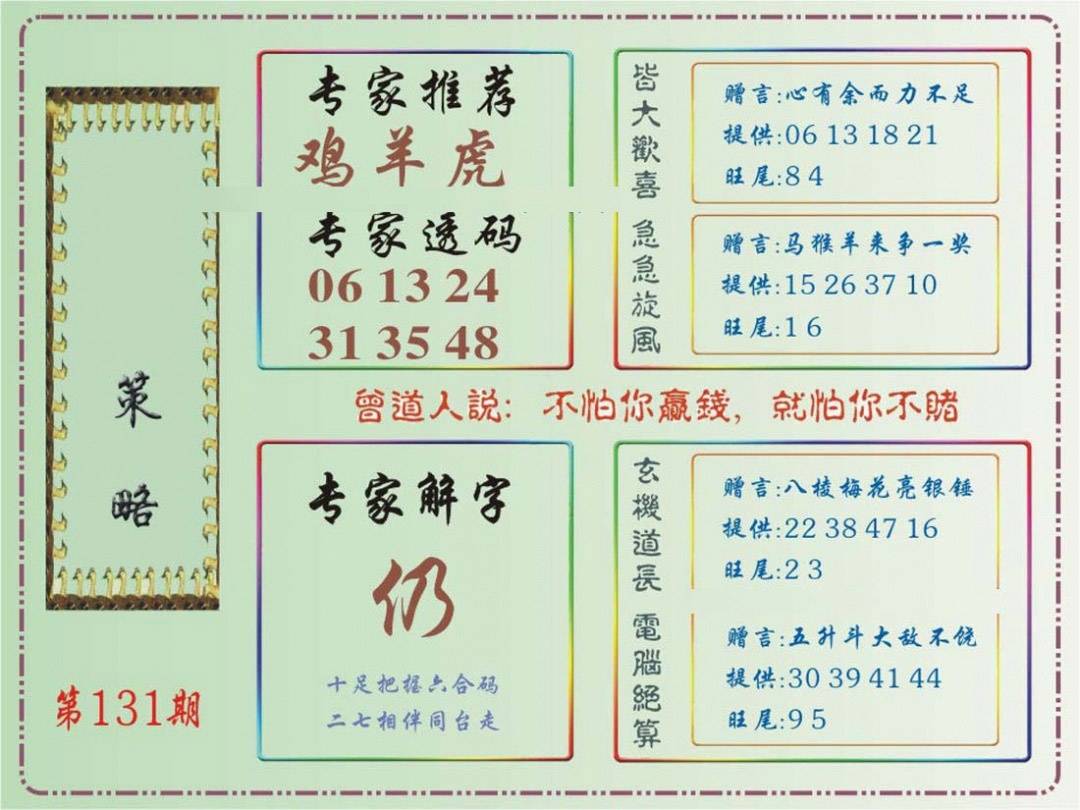 策略
第131期
专家推荐
鸡羊虎
专家透码
06 13 24
31 35 48
皆大歡喜
赠言:心有余而力不足
提供:06 13 18 21
旺尾:8 4
急急旋风
赠言:马猴羊来争一奖
提供:15 26 37 10
旺尾:1 6
曾道人説: 不怕你贏錢, 就怕你不賭
专家解字
仍
十足把握六合码
二七相伴同台走
玄機道長
赠言:八棱梅花亮银锤
提供:22 38 47 16
旺尾:2 3
電腦絕算
赠言:五升斗大敌不饶
提供:30 39 41 44
旺尾:9 5